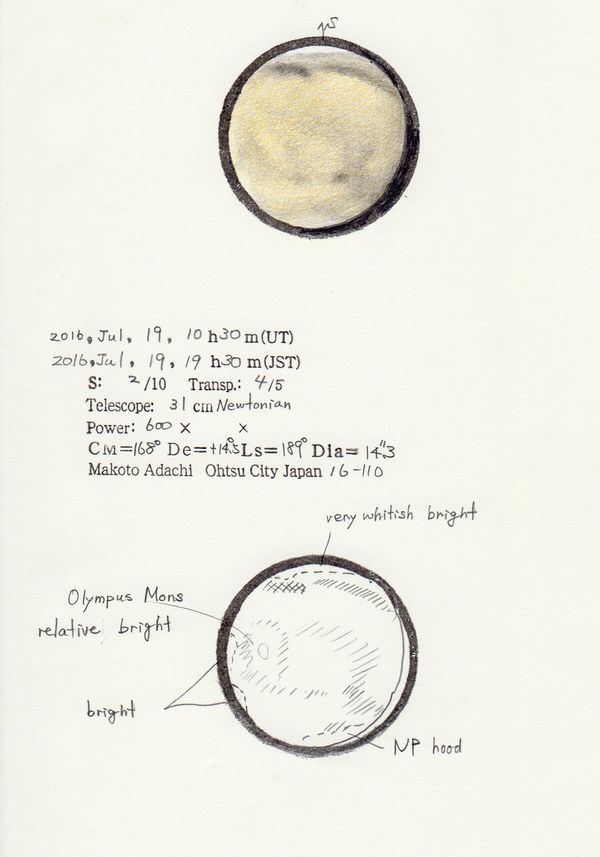 2016, Jul, 19, 10 h 30 m (UT)
2016, Jul, 19, 19 h 30 m (JST)
S: 2/10 Transp.: 4/5
Telescope: 31 cm Newtonian
Power: 600 × ×
CM=168° De=+14.°5 Ls=189° Dia=14."3
Makoto Adachi Ohtsu City Japan 16-110
very whitish bright
Olympus Mons
relative bright
bright
NP hood